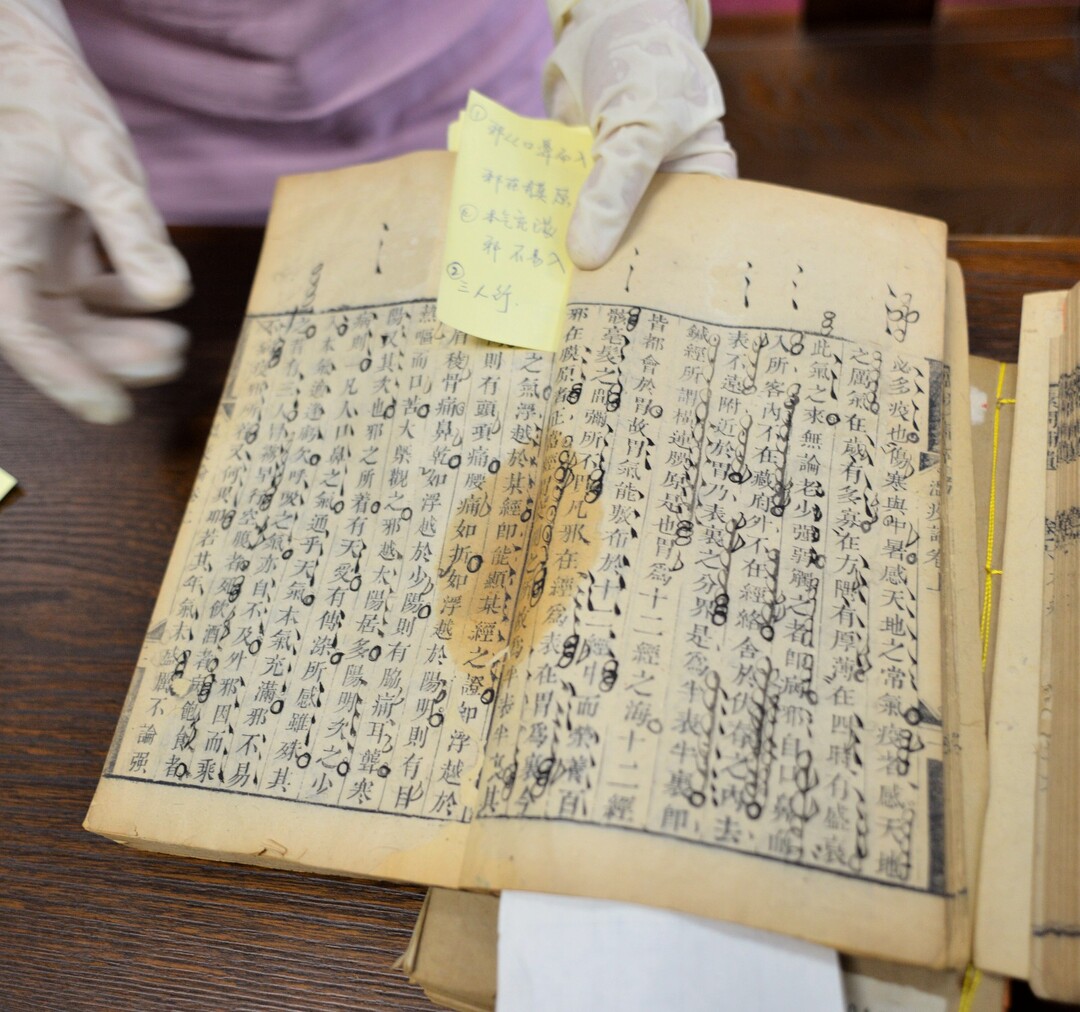 ①邪從口鼻而入
邪在膜原
②本气充满
邪不易入
②三人行.
必多疫也傷寒與中暑感天地之常氣疫者感天地
之厲氣在歲有多寡在方隅有厚薄在四時有盛衰
此氣之來無論老少強弱觸之者即病邪自口鼻而
入所客內不在藏府外不在經絡舍於伏脊之內去
表不遠附近於胃乃表裏之分界是為半表半裏即
鍼經所謂橫連膜原是也胃為十二經之海十二經
皆都會於胃故胃氣能敷布於十二經中而榮養百
骸毫髮之間彌所不貫凡邪在經為表在胃為裏今
邪在膜原者正當經為半表半其
之氣浮越於某經即能顯某經之證如浮越於
則有頭項痛腰痛如折如浮越於陽明則有目
眉稜骨痛鼻乾如浮越於少陽則有脇痛耳聾寒
熱嘔而口苦大槩觀之邪越太陽居多陽明次之少
陽又其次也邪之所着有天受有傳染所感雖殊其
病則一凡人口鼻之氣通乎天氣本氣充滿邪不易
入本氣適逢虧欠呼吸之氣亦自不及外邪因而乘
之昔有三人冒霧早行空腹者死飲酒者病飽食者
不病疫邪所着又何異耶若其年氣來盛厲不論强
溫疫論卷上